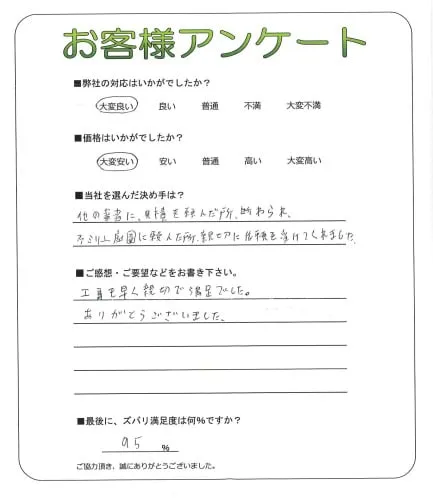 お客様アンケート
■弊社の対応はいかがでしたか？
大変良い 良い 普通 不満 大変不満
■価格はいかがでしたか？
大変安い 安い 普通 高い 大変高い
■当社を選んだ決め手は？
他の業者に、見積を頼んだ所、断わられ、
庭園に頼んだ所、親切に依頼を受けてくれました。
■ご感想・ご要望などをお書き下さい。
工事も早く親切で満足でした。
ありがとうございました。
■最後に、ズバリ満足度は何％ですか？
95 ％
ご協力頂き、誠にありがとうございました。